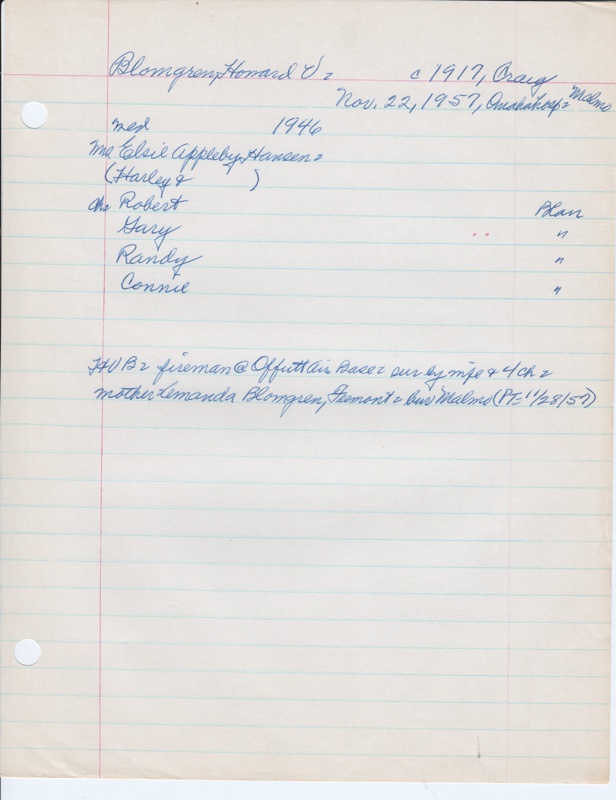 Blomgren, Howard V = c 1917, Craig
Nov. 22, 1957, Omaha hosp = Malmo
med 1946
Mrs Elsie Appleby Hansen =
(Harley & )
ch = Robert Blair
Gary "
Randy "
Connie "
HVB = fireman @ Offutt Air Base = sur by wife & 4 ch =
mother Amanda Blomgren, Fremont = bur Malmo (PT = 11/28/57)